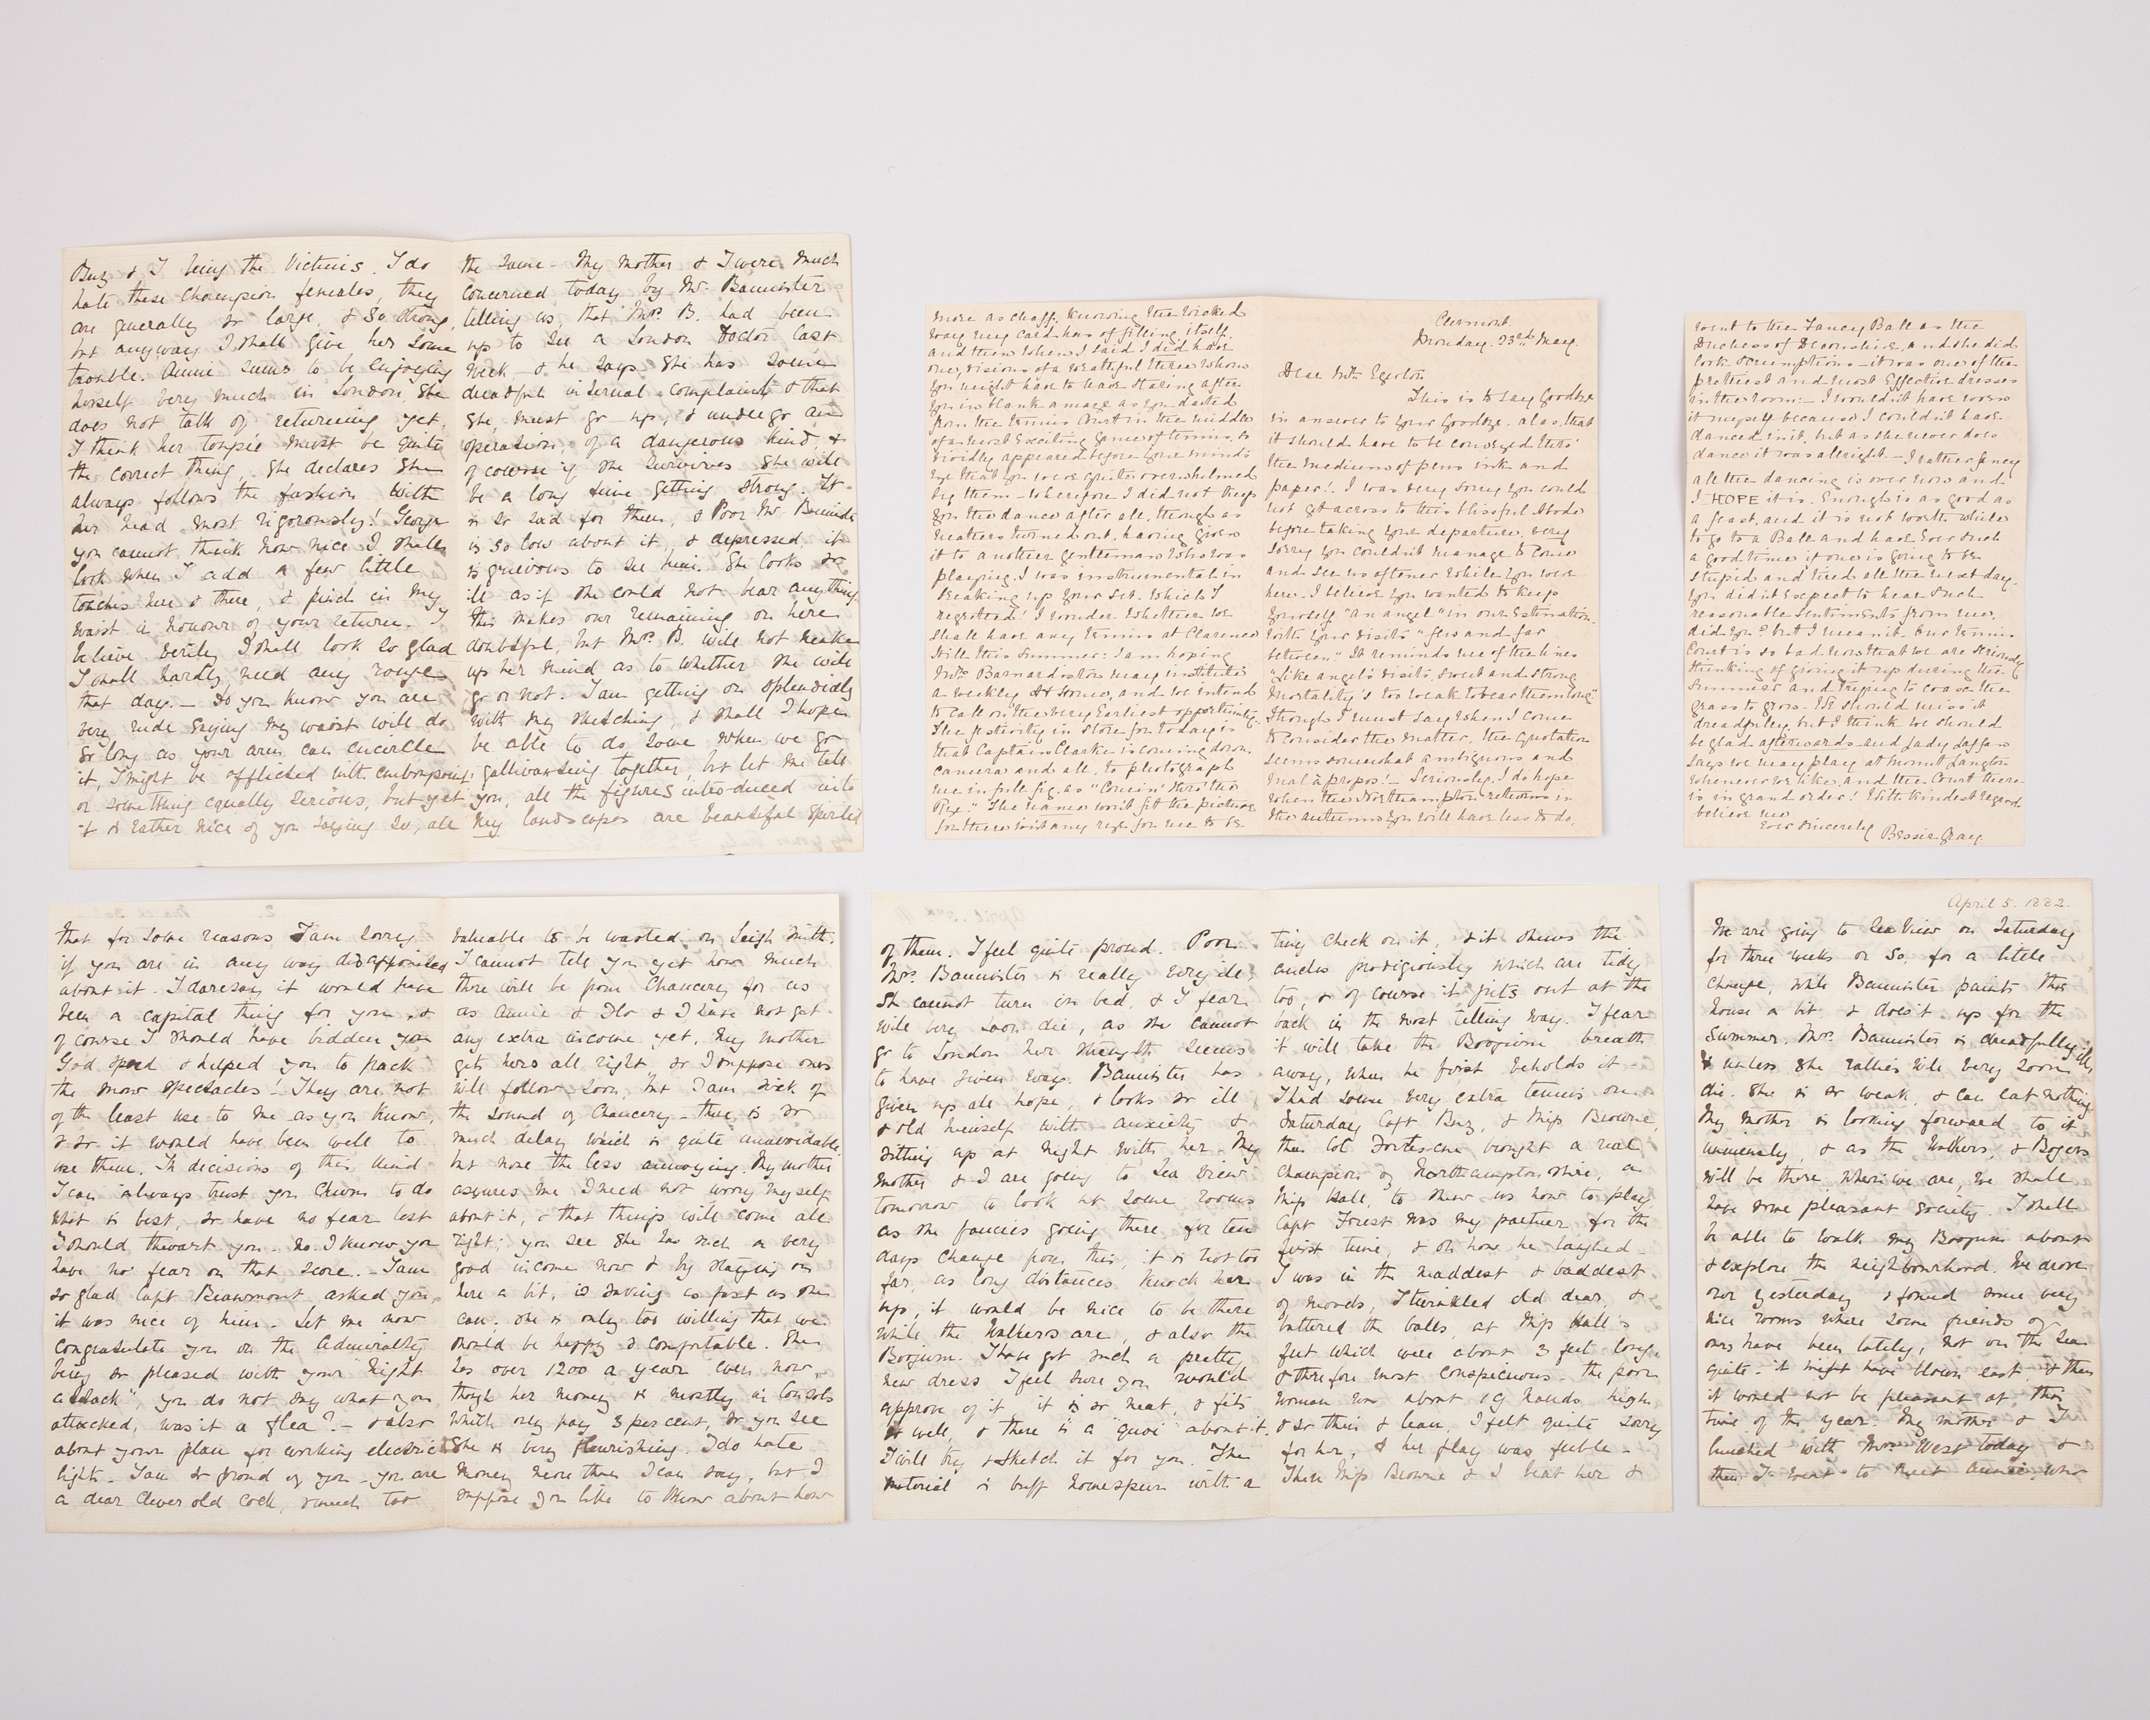 Buz & I being the Victims. I do
hate these Champion females, they
are generally so large, & so strong,
but anyway I shall give her some
trouble. Annie seems to be enjoying
herself very much in London, she
does not talk of returning yet.
I think her toupée must be quite
the correct thing, she declares she
always follows the fashion with
her head most rigorously! George
you cannot think how nice I shall
look when I add a few little
touches here & there, & pinch in my
waist in honour of your return. I
believe verily I shall look so glad
I shall hardly need any rouge
that day. — Do you know you are
very rude saying my waist will do
so long as your arm can encircle
it, I might be afflicted with embonpoint
or something equally serious, but yet
it is rather nice of you saying so, all
the same — My mother & I were much
concerned today by Mr. Bannister
telling us, that Mrs. B. had been
up to see a London Doctor last
week — & he says she has some
dreadful internal complaint & that
she must go up, & undergo an
operation, of a dangerous kind, &
of course if she survives she will
be a long time getting strong. It
is so sad for them, & Poor Mr. Bannister
is so low about it, & depressed, it
is grievous to see him. She looks so
ill as if she could not bear anything
This makes our remaining on here
doubtful, but Mrs. B. will not make
up her mind as to whether she will
go or not. I am getting on splendidly
with my sketching, & shall I hope
be able to do some when we go
gallivanting together, but let me tell
you, all the figures introduced into
my landscapes are beautiful spirited
more as chaff, knowing the wicked
way my card has of filling itself
and then when I said I did have
one, visions of a wrathful
you might have to leave staring after
you in blank amaze as you darted
from the Tennis Court in the middle
of a most exciting game of tennis, so
vividly appeared before your minds
eye that you were quite overwhelmed
by them — Wherefore I did not keep
you the dance after all, though as
matters turned out, having given
it to another gentleman who was
playing, I was instrumental in
breaking up your set. Which I
regretted! I wonder whether we
shall have any Tennis at Clarence
Hill this Summer: I am hoping
Mrs. Barnardiston may institute
a weekly At Home, and we intend
to call on the very earliest opportunity.
The festivity in store for today is
that Captain Clarke is coming down,
camera and all, to photograph
me in full fig. as "Comin' thro' the
Rye." The name won't fit the picture
for there isn't any rye for me to be
Clermont.
Monday. 23rd May.
Dear Mr. Egerton
This is to say Goodbye
in answer to your Goodbye. alas, that
it should have to be conveyed thro'
the mediums of pens ink and
paper!. I was very sorry you could
not get across to this blissful Abode
before taking your departure. very
sorry you couldn't manage to come
and see us oftener while you were
here. I believe you wanted to keep
yourself "an angel" in our estimation.
with your visits "few and far
between." It reminds me of the lines
"Like angel's visits, sweet and strong
Mortality's too weak to bear them long"
though I must say when I come
to consider the matter, the quotation
seems somewhat ambiguous and
mal à propos! — Seriously, I do hope
when the Northampton returns in
the autumn you will have less to do.
went to the Fancy Ball as the
Duchess of Devonshire, and she did
look scrumptious — it was one of the
prettiest and most effective dresses
in the room: — I wouldn't have worn
it myself because I couldn't have
danced in it, but as she never does
dance it was allright. — I rather fancy
all the dancing is over now and
I HOPE it is. Enough is as good as
a feast, and it is not worth while
to go to a Ball and have ever such
a good time if one is going to be
stupid and tired all the next day.
You didn't expect to hear such
reasonable sentiments from me,
did you? but I mean it. Our Tennis
Court is so bad now that we are seriously
thinking of giving it up during this
Summer and trying to coax the
grass to grow. We should miss it
dreadfully, but I think we should
be glad afterwards and Lady
says we may play at Mount Langton
whenever we like, and the Court there
is in grand order! With kindest regard
believe me
Ever sincerely Bessie Gray.
that for some reasons I am sorry
if you are in any way disappointed
about it. I daresay it would have
been a capital thing for you, &
of course I should have bidden you
God speed & helped you to pack
the snow spectacles! They are not
of the least use to me as you know,
& so it would have been well to
use them. In decisions of this kind
I can always trust you to do
what is best, so have no fear lest
I should thwart you — No I know you
have no fear on that score. — I am
so glad Capt Beaumont asked you,
it was nice of him. Let me now
congratulate you on the Admiralty
being so pleased with your "night
attack", you do not say what you
attacked, was it a flea? — & also
about your plan for working electric
lights — I am so proud of you — you are
a dear clever old cock, & much too
valuable to be wasted on Leigh Smith.
I cannot tell you yet how much
there will be from Chancery for us
as Annie & Flo & I have not got
any extra income yet. My mother
gets hers all right, so I suppose ours
will follow soon, but I am sick of
the sound of Chancery — there is so
much delay which is quite unavoidable,
but none the less annoying. My mother
assures me I need not worry myself
about it, & that things will come all
right; you see she has such a very
good income now & by staying on
here a bit, is saving as fast as she
can. She is only too willing that we
should be happy & comfortable. She
has over 1200 a year even now,
though her money is mostly in Consols
which only pay 3 per cent, so you see
she is very flourishing. I do hate
money more than I can say, but I
suppose you like to know about how
of them. I feel quite proud. Poor
Mrs. Bannister is really very ill
She cannot turn in bed, & I fear
will very soon die, as she cannot
go to London her strength seems
to have given way. Bannister has
given up all hope, & looks so ill
& old himself with anxiety &
sitting up at night with her. My
mother & I are going to Sea View
tomorrow to look at some rooms
as she fancies going there for ten
days change from this, it is not too
far, as long distances knock her
up, it would be nice to be there
while the Walkers are, & also the
Boojum. I have got such a pretty
new dress I feel sure you would
approve of it it is so neat, & fits
so well, & there is a "quoi" about it.
I will try & sketch it for you. The
material is buff homespun with a
tiny check on it, & it shews the
ancles prodigiously which are tidy
too, & of course it juts out at the
back in the most telling way. I fear
it will take the Boojum breath
away, when he first beholds it.
I had some very extra tennis on
Saturday Capt Buz, & Miss Browne,
then Col Fortescue brought a real
champion of Northamptonshire, a
Miss Hall, to shew us how to play
Capt Forest was my partner for the
first time, & oh how he laughed —
I was in the maddest & baddest
of moods, I twinkled old dear, &
battered the balls, at Miss Hall's
feet which were about 3 feet long
& therefore most conspicuous — the poor
woman was about 19 hands high,
& so thin & lean, I felt quite sorry
for her, & her play was feeble —
Then Miss Browne & I beat her &
April 5. 1882.
We are going to Sea View on Saturday
for three weeks or so, for a little
change, while Bannister paints this
house a bit & does it up for the
Summer. Mrs. Bannister is dreadfully ill,
& unless she rallies will very soon
die. She is so weak, & can eat nothing
My mother is looking forward to it
immensely, & as the Walkers, & Rogers
will be there when we are, we shall
have some pleasant society. I shall
be able to walk my Boojum about
& explore the neighbourhood. We drove
over yesterday & found some very
nice rooms where some friends of
ours have been lately, not on the sea
quite — it might have blown east, & then
it would not be pleasant at this
time of the year. My mother & I
lunched with Mrs. West today &
then I went to meet Annie, who